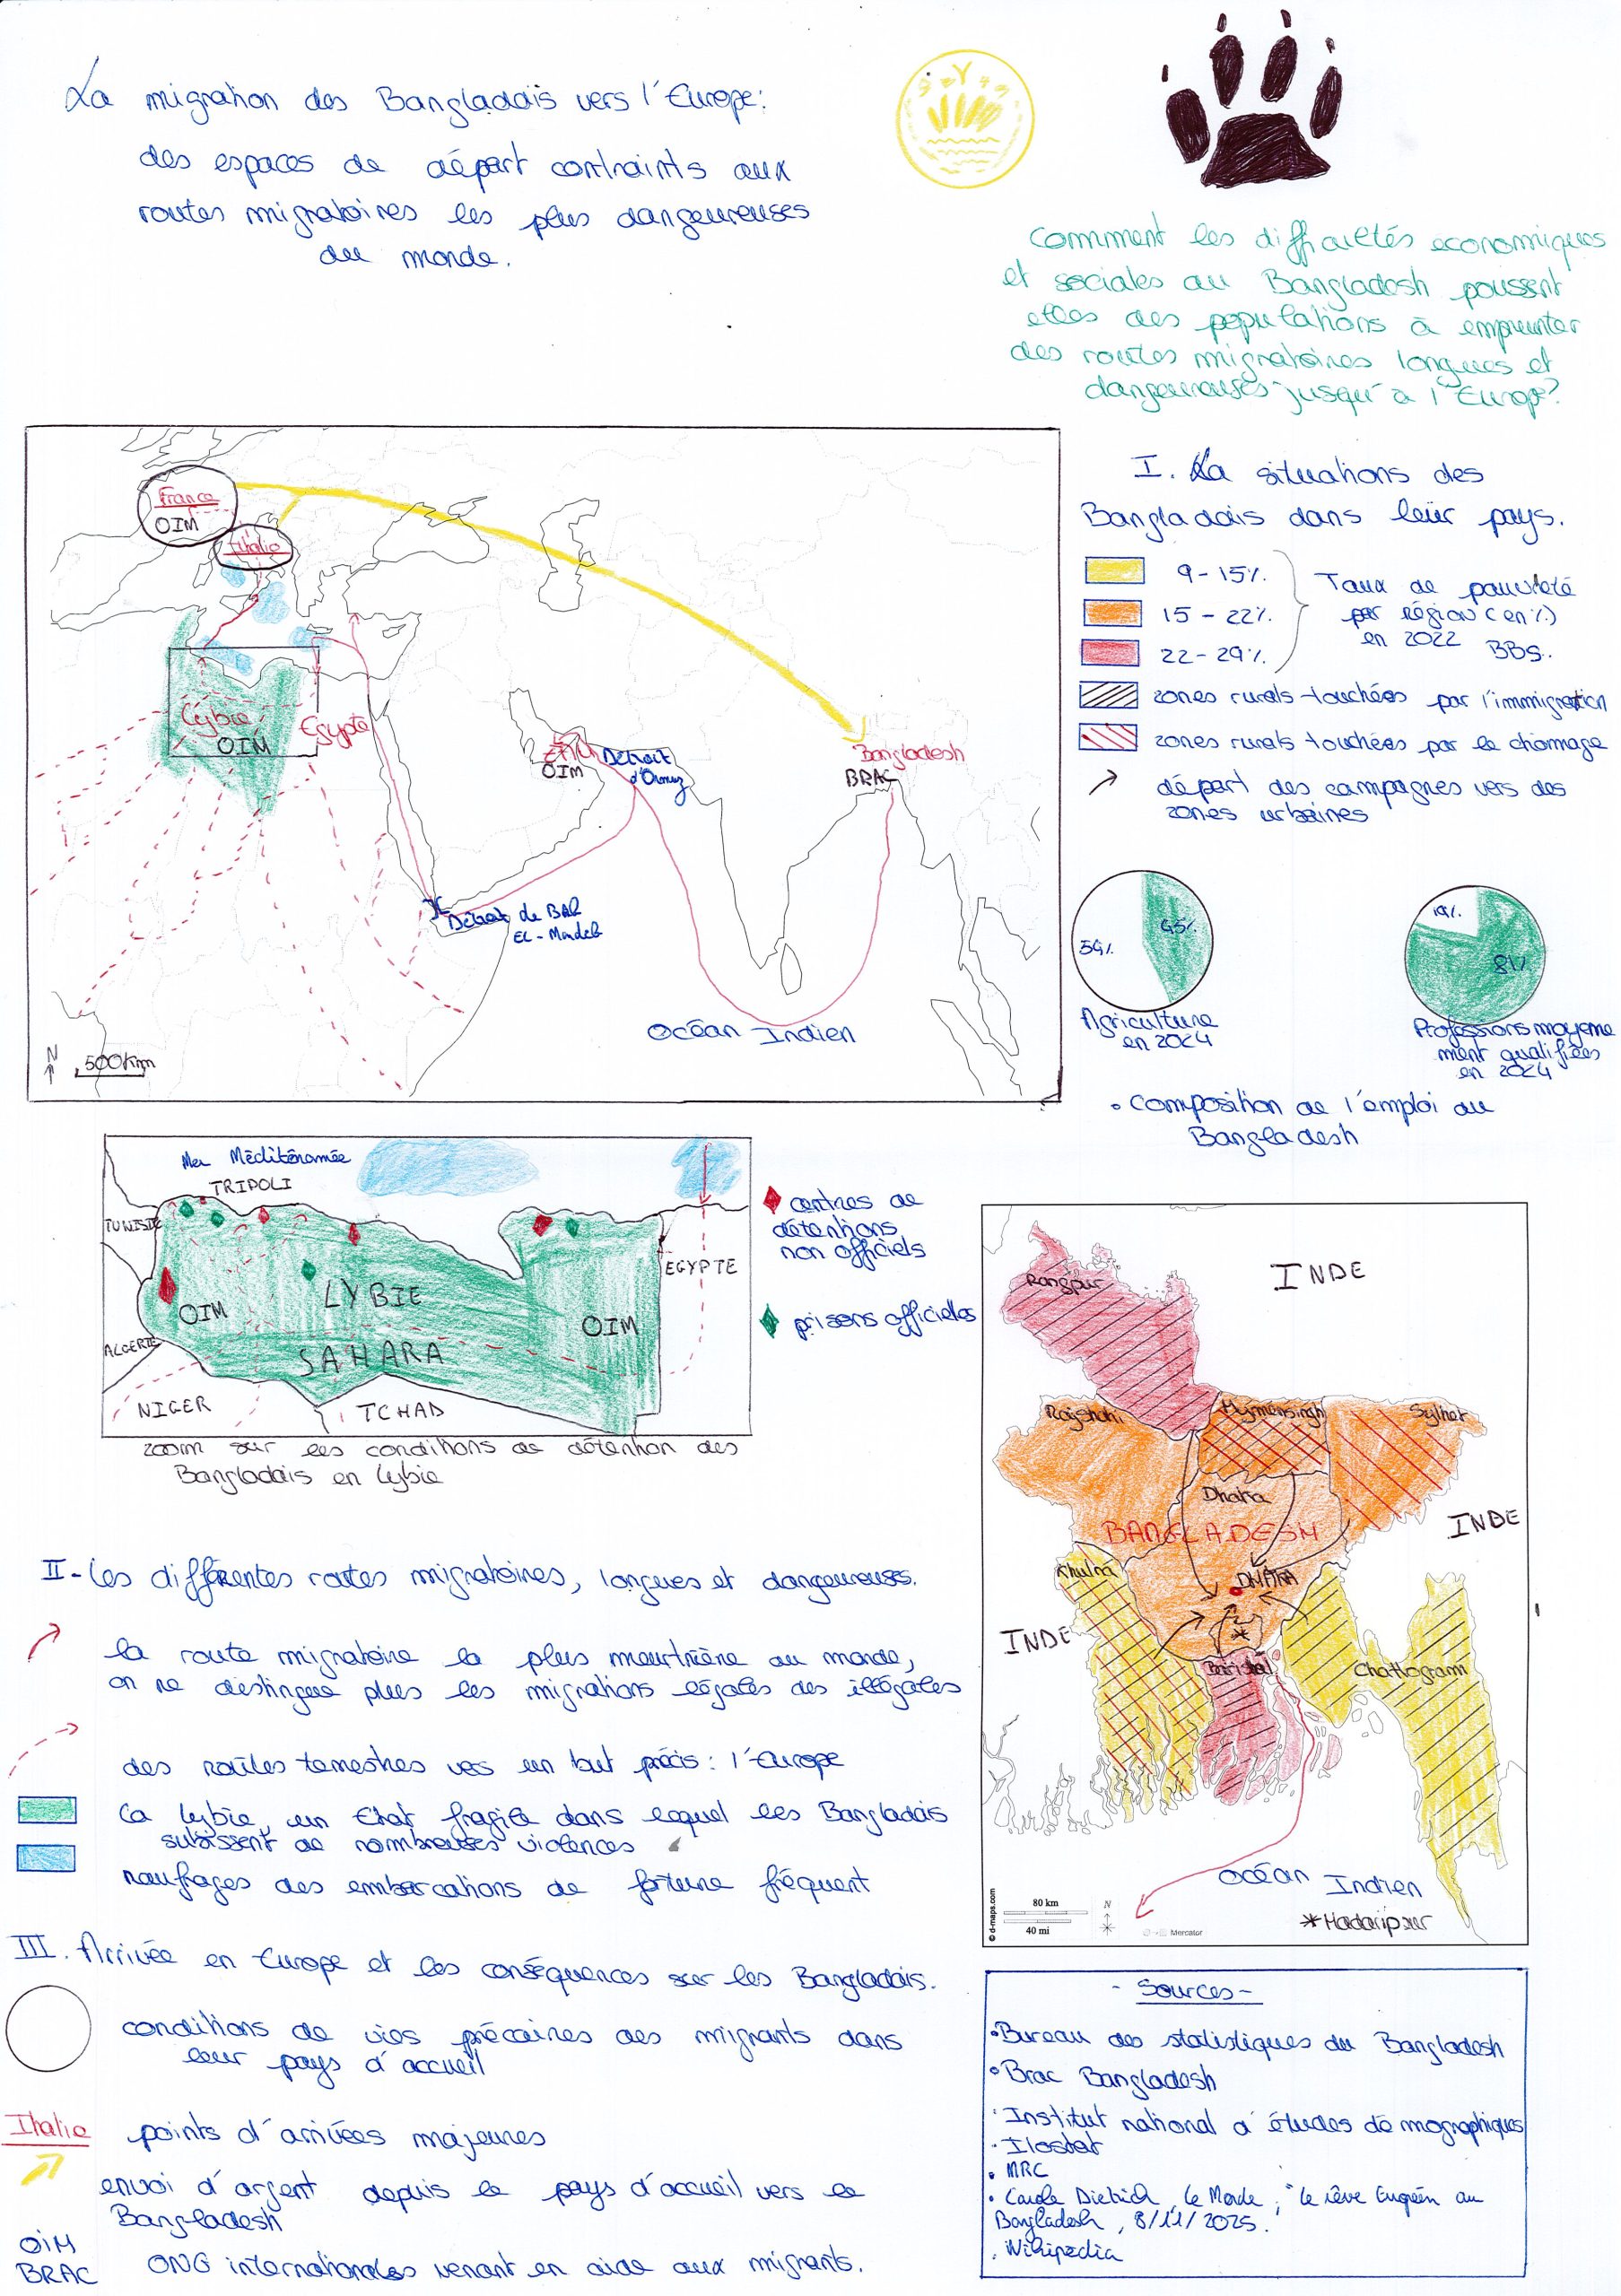 La migration des Bangladais vers l'Europe:
des espaces de départ contraints aux
routes migratoires les plus dangeureuses
du monde.
Comment les difficultés economiques
et sociales au Bangladesh poussent
elles des populations à emprunter
des routes migratoires longues et
dangeureuses jusqu'à l'Europe?
France
OIM
Italie
Lybie
OIM
Egypte
OIM
Détroit
d'Ormuz
Bangladesh
BRAC
Détroit de BAB
EL-Mandeb
Océan Indien
N
500km
I. La situations des
Bangladais dans leur pays.
9-15%
15-22%
22-29%
Taux de pauvreté
par région (en %)
en 2022 BBS.
zones rurals touchées par l'immigration
zones rurals touchées par le chomage
départ des campagnes vers des
zones urbaines
54%
45%
Agriculture
en 2024
19%
81%
Professions moyenne
ment qualifiées
en 2024
• Composition de l'emploi au
Bangladesh
Mer Méditéranée
TRIPOLI
TUNISIE
LYBIE
OIM
OIM
EGYPTE
ALGERIE
SAHARA
NIGER
TCHAD
centres de
détentions
non officiels
prisons officielles
zoom sur les conditions de détention des
Bangladais en Lybie
INDE
Rangpur
Rajshahi
Mymensingh
Sylhet
Dhaka
BANGLADESH
INDE
Khulna
DHAKA
INDE
Barishal
Chattogram
Océan Indien
*Madaripur
© d-maps.com
80 km
40 mi
N
Mercator
II-Les différentes routes migratoires, longues et dangeureuses.
la route migratoire la plus meurtrière au monde,
on ne distingue plus les migrations légales des illégales
des routes terrestres vers un but précis: l'Europe
La Lybie, un Etat fragile dans lequel les Bangladais
subissent de nombreuses violences
naufrages des embarcations de fortune fréquent
III. Arrivée en Europe et les conséquences sur les Bangladais.
conditions de vies précaires des migrants dans
leur pays d'accueil
Italie points d'arrivées majeures
envoi d'argent depuis le pays d'accueil vers le
Bangladesh
OIM
BRAC ONG internationales venant en aide aux migrants.
- Sources -
•Bureau des statistiques du Bangladesh
•Brac Bangladesh
•Institut national d'études démographiques
•Ilostat
•MRC
•Carole Dietrich, Le Monde, "le rêve Européen au
Bangladesh, 8/11/2025.
•Wikipedia